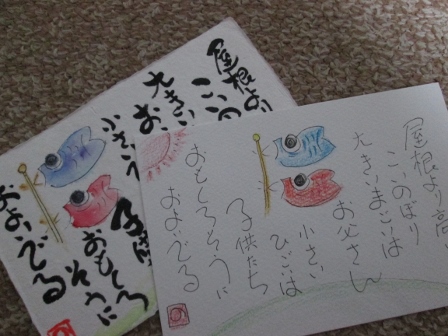 屋根より高
こいのぼり
大きいまごいは
お父さん
小さい
ひごいは
子供たち
おもしろそうに
およいでる
屋根より
こいの
大きい
お
小さい
子供
おもしろ
そうに
およいでる